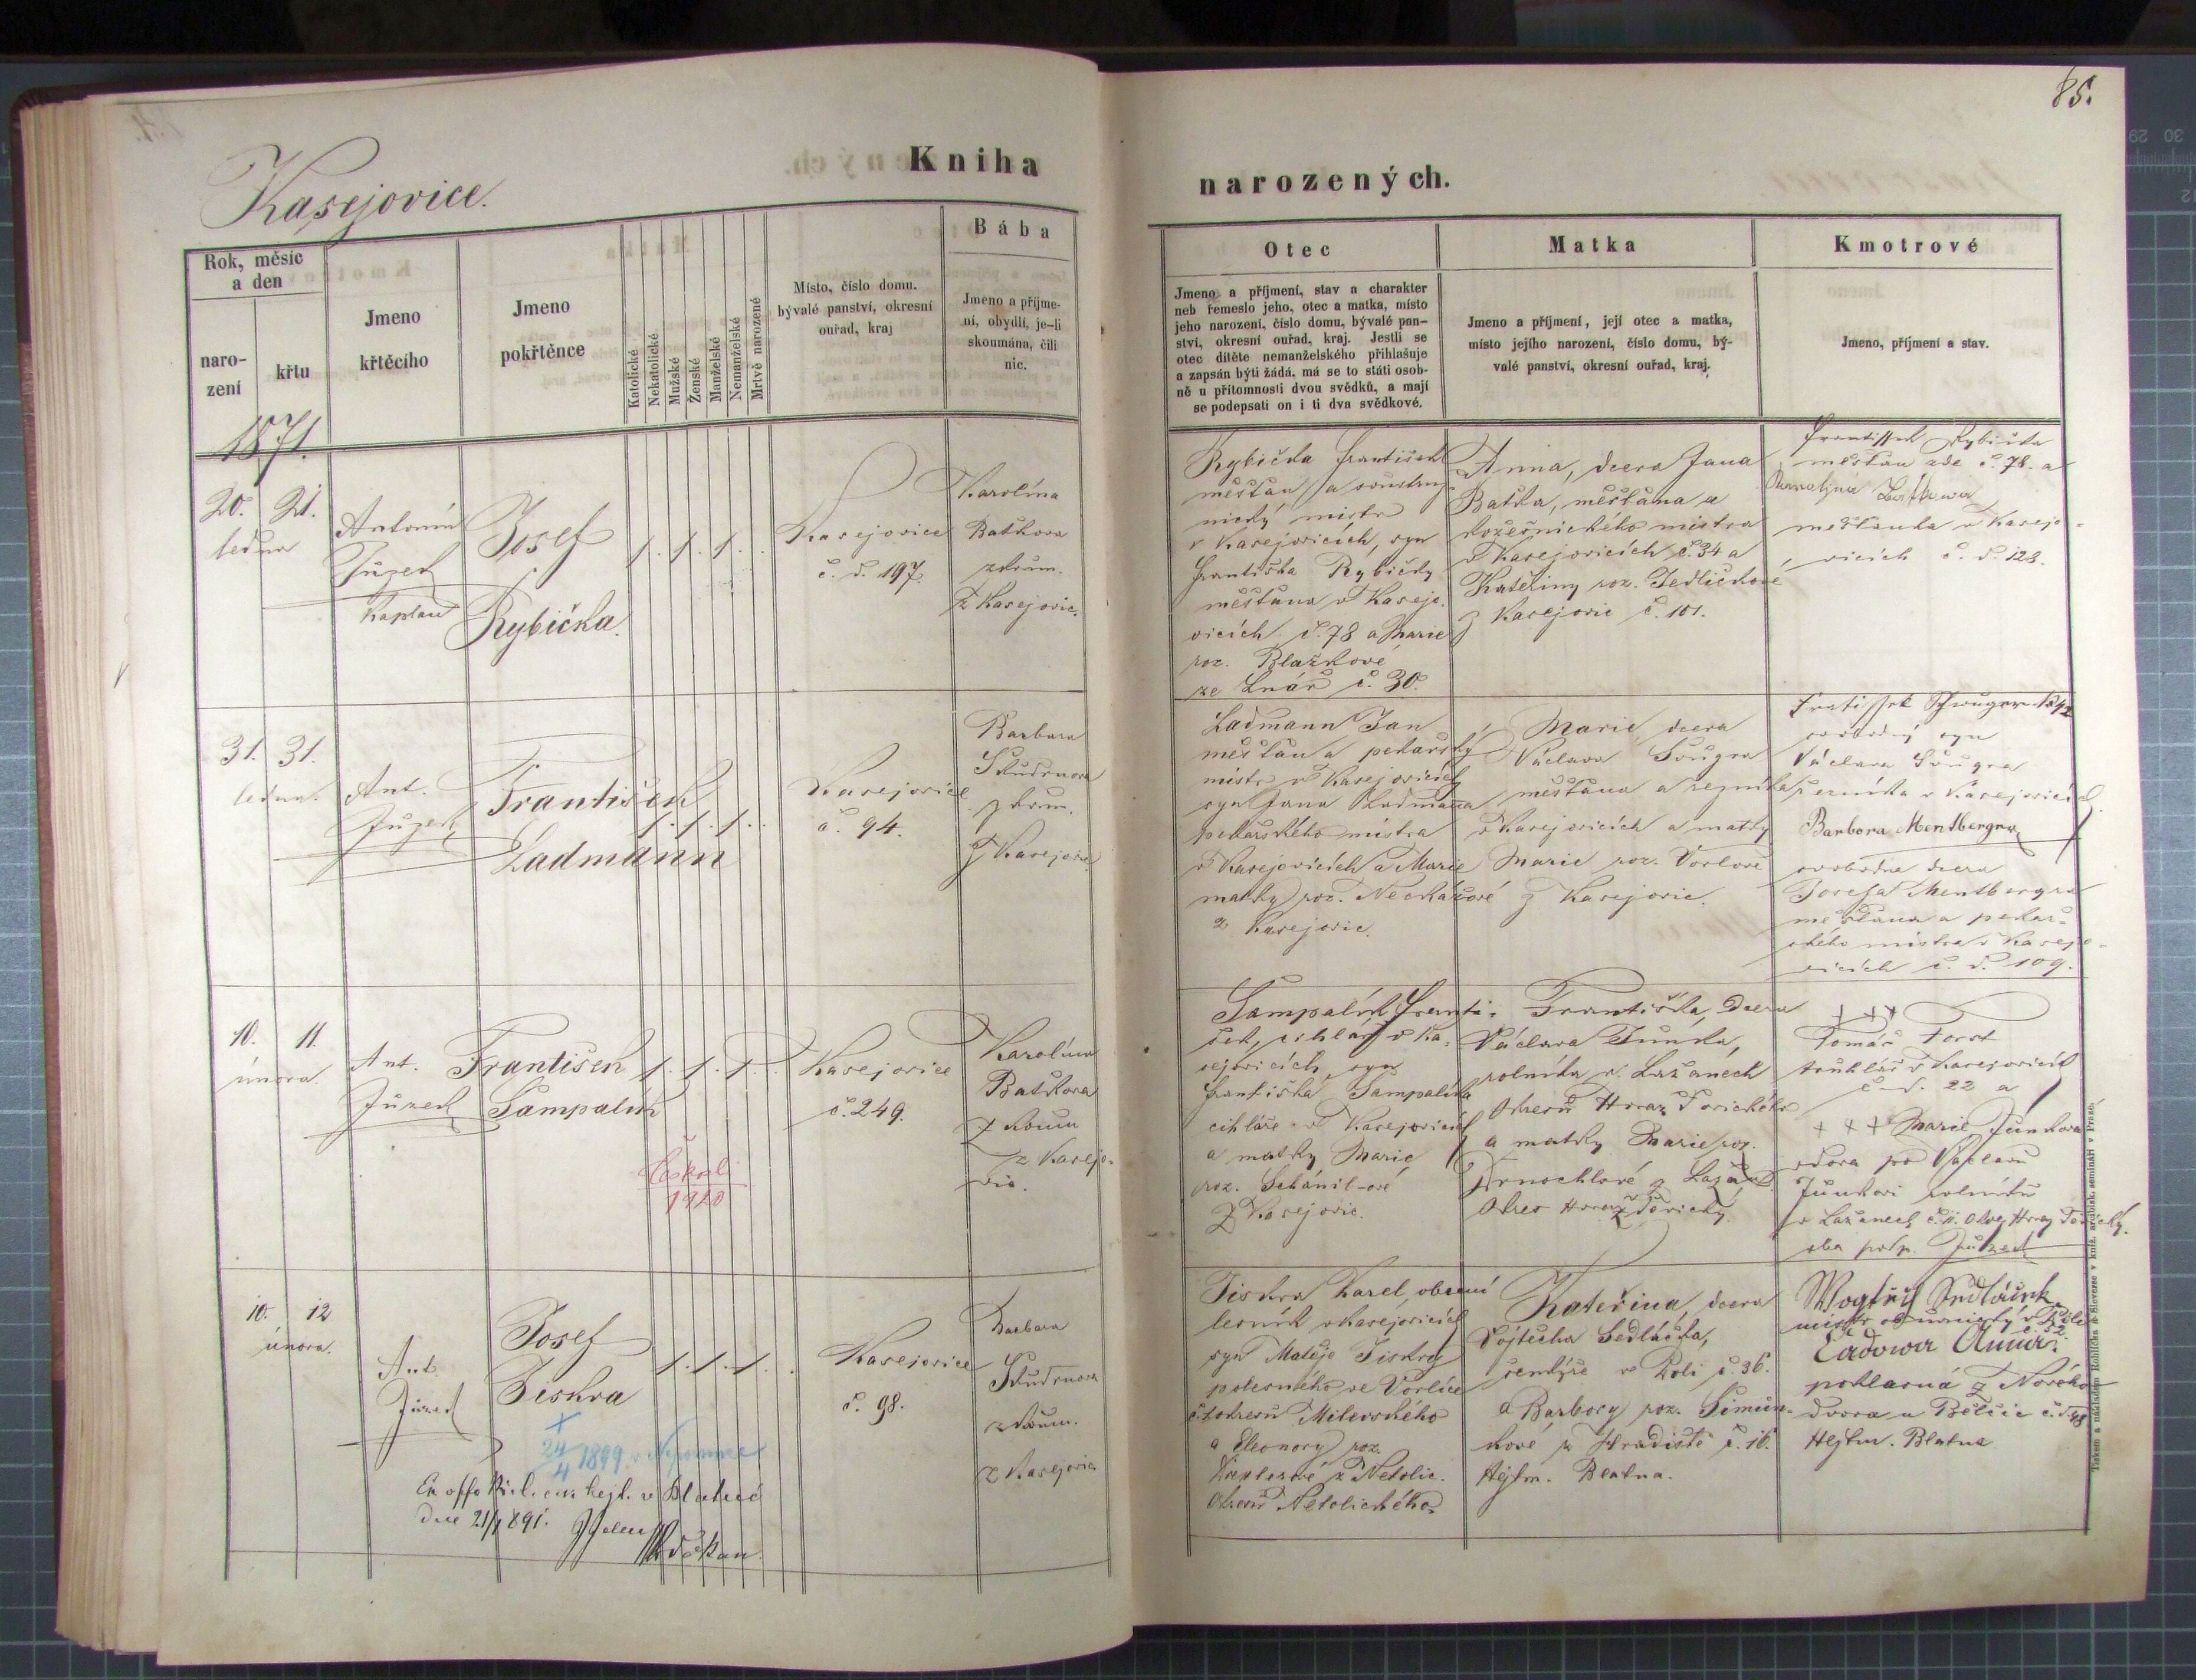 85.
Kasejovice.
Kniha
narozených.
Rok, měsíc
a den
naro-
zení
křtu
Jmeno
křtěcího
Jmeno
pokřtěnce
Katolické
Nekatolické
Mužské
Ženské
Manželské
Nemanželské
Mrtvě narozené
Místo, číslo domu.
bývalé panství, okresní
ouřad, kraj
Bába
Jmeno a příjme-
ní, obydlí, je-li
skoumána, čili
nic.
Otec
Jmeno a příjmení, stav a charakter
neb řemeslo jeho, otec a matka, místo
jeho narození, číslo domu, bývalé pan-
ství, okresní ouřad, kraj. Jestli se
otec dítěte nemanželského přihlašuje
a zapsán býti žádá, má se to státi osob-
ně u přítomnosti dvou svědků, a mají
se podepsati on i ti dva svědkové.
Matka
Jmeno a příjmení, její otec a matka,
místo jejího narození, číslo domu, bý-
valé panství, okresní ouřad, kraj.
Kmotrové
Jmeno, příjmení a stav.
1871.
20. 21.
ledna
Antonín
Jůzek
Kaplan
Josef
Rybička.
1. 1. 1.
Kasejovice
č. d. 197.
Karolína
Batkova
zkoum.
z Kasejovic.
Rybička František
měšťan a
nický mistr
v Kasejovicích, syn
Františka Rybičky
měšťana v Kasejo-
vicích č. 78 a Marie
roz. Blažkové
ze Lnář č. 30.
Anna, dcera Jana
Batka, měšťana a
kožešnického mistra
v Kasejovicích č. 34 a
Kateřiny roz. Jedličkové
z Kasejovic č. 101.
Frantissek Rybička
měšťan zde č. 78. a
měšťanka v Kasejo-
vicích č. d. 128.
31. 31.
ledna.
Ant.
Jůzek
František
Ladmann
1. 1. 1.
Kasejovice
č. 94.
Barbara
Skudrnova
zkoum.
z Kasejovic
Ladmann Jan
měšťan a pekařský
mistr v Kasejovicích
syn Jana Ladmanna
pekařského mistra
v Kasejovicích a Marie
matky roz. Neckářové
z Kasejovic.
Marie, dcera
Václava Šougra
měšťana a řezníka
v Kasejovicích a matky
Marie roz. Vorlové
z Kasejovic.
svobodný syn
Václava Šougra
řezníka v Kasejovicích.
Barbora Mentbergrx
svobodna dcera
Josefa Mentbergra
měšťana a pekař-
ského mistra v Kasejo-
vicích č. d. 109.
10. 11.
února.
Ant.
Jůzek
František
Šampalík
1. 1. 1.
Kasejovice
č. 249.
Karolína
Batkova
zkoum.
z Kasejo-
vic.
1920
Šampalík Franti-
šek, cihlář v Ka-
sejovicích, syn
Františka Šampalíka
cihláře v Kasejovicích
a matky Marie
roz.
z Kasejovic.
Františka, dcera
Václava Junka,
rolníka v Lažanech
okresu Horažďovického
a matky Marie roz.
z Lažan
okres Horažďovický.
+++
Tomáš Forst
truhlář v Kasejovicích
č. d. 22 a
+++ Marie Junkova
vdova po Václavu
Junkovi rolníku
v Lažanech č. 11. okres Horažďovický.
oba podp. Jůzek
10. 12
února.
Ant.
Jůzek
Josef
Jiskra
1. 1. 1.
Kasejovice
č. 98.
Barbara
Skudrnova
zkoum.
z Kasejovic
+
24/4 1899
Ex offo hejt. v Blatné
dne 21/1 891.
děkan.
Jiskra Karel, obecní
lesník v Kasejovicích
syn Matěje Jiskry
polesného ve Vorlíce
okresu Milevského
a Eleonory roz.
z Netolic.
okresu Netolického.
Kateřina, dcera
Vojtěcha Sedláčka,
v Poli č. 36.
a Barbory roz. Šimún-
kové z Hradiště č. 16.
Hejtm. Blatna.
č. 52.
Ladowa Anna.
poklasná z Nového
dvora u Bělčic č. d. 48
Hejtm. Blatna
Tiskem a nákladem Rohlíčka & Sieverse v kníž. arcibisk. semináři v Praze.